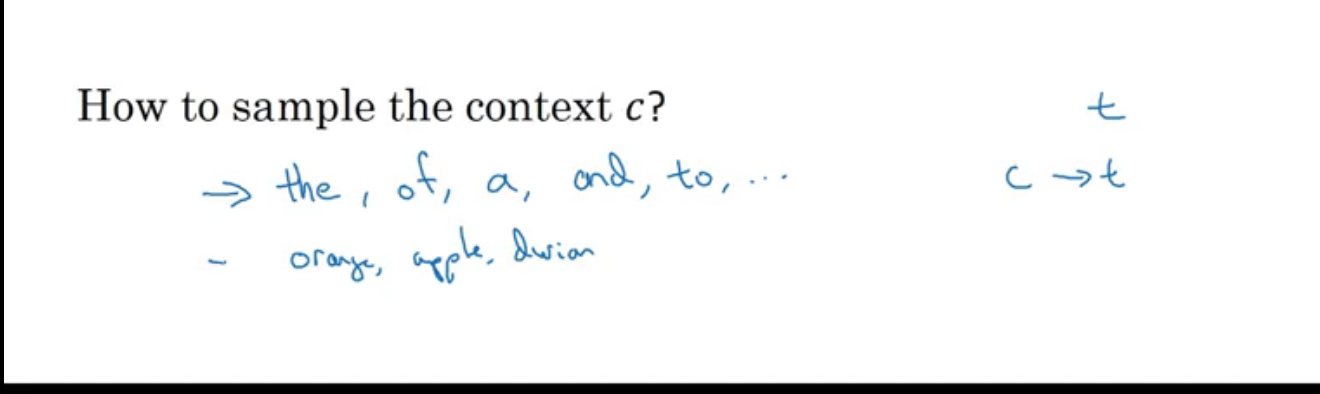 How to sample the context c?
t
→ the, of, a, and, to, ...
c → t
- orange, apple, durian